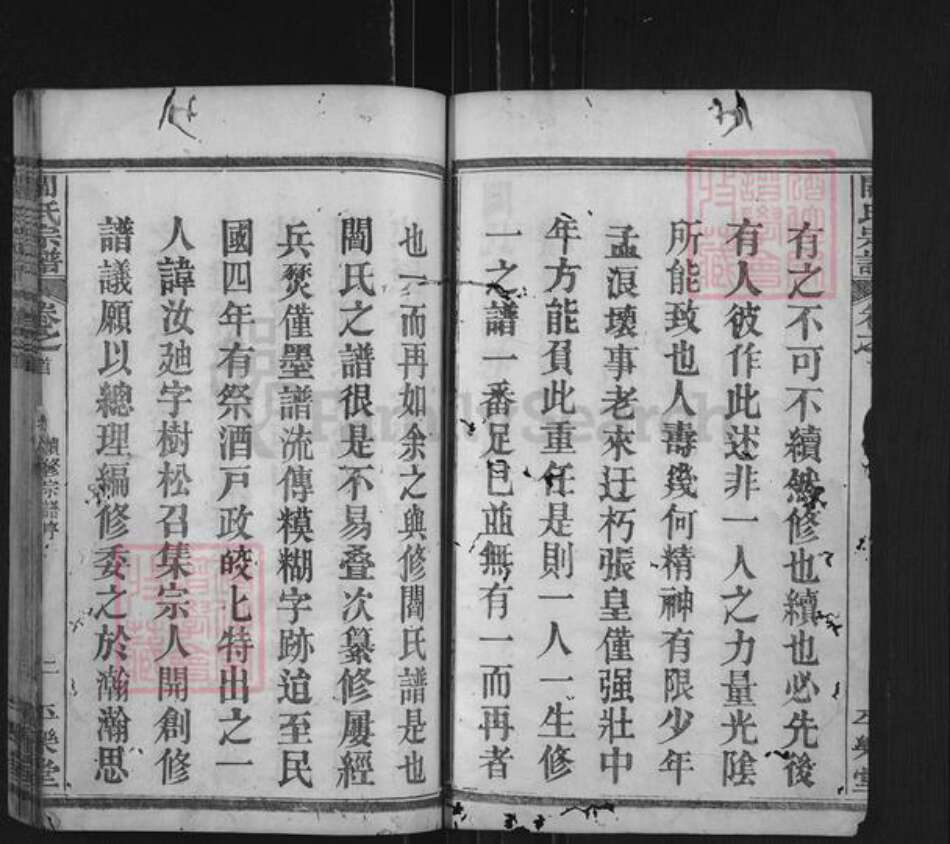 有之不可不續然修也續也必先後
有人彼作此述非一人之力量光陰
所能致也人壽幾何精神有限少年
孟浪壞事老來迂朽張皇僅强壯中
年方能負此重任是則一人一生修
一之譜一番足已並無有一而再者
也一而再如余之與修閻氏譜是也
閻氏之譜很是不易叠次纂修屢經
兵燹僅墨譜流傳糢糊字跡迨至民
國四年有祭酒戸政皎匕特出之一
人諱汝廸字樹松召集宗人開創修
譜議願以總理編修委之於瀚瀚思
閻氏宗譜
卷之首
續修宗譜序
二
樂堂
FamilySearch